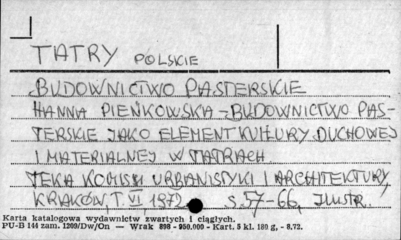 TATRY POLSKIE
BUDOWNICTWO PASTERSKIE
HANNA PIEŃKOWSKA - BUDOWNICTWO PAS-
TERSKIE JAKO ELEMENT KULTURY DUCHOWEJ
I MATERIALNEJ W TATRACH.
TEKA KOMISJI URBANISTYKI I ARCHITEKTURY,
KRAKÓW, T. VI, 1972 S. 57-66, ILUSTR.
Karta katalogowa wydawnictw zwartych i ciągłych.
PU-B 144 zam. 1209/Dw/On — Wrak 898 - 950.000 - Kart. 5 kl. 180 g, - 8.72.